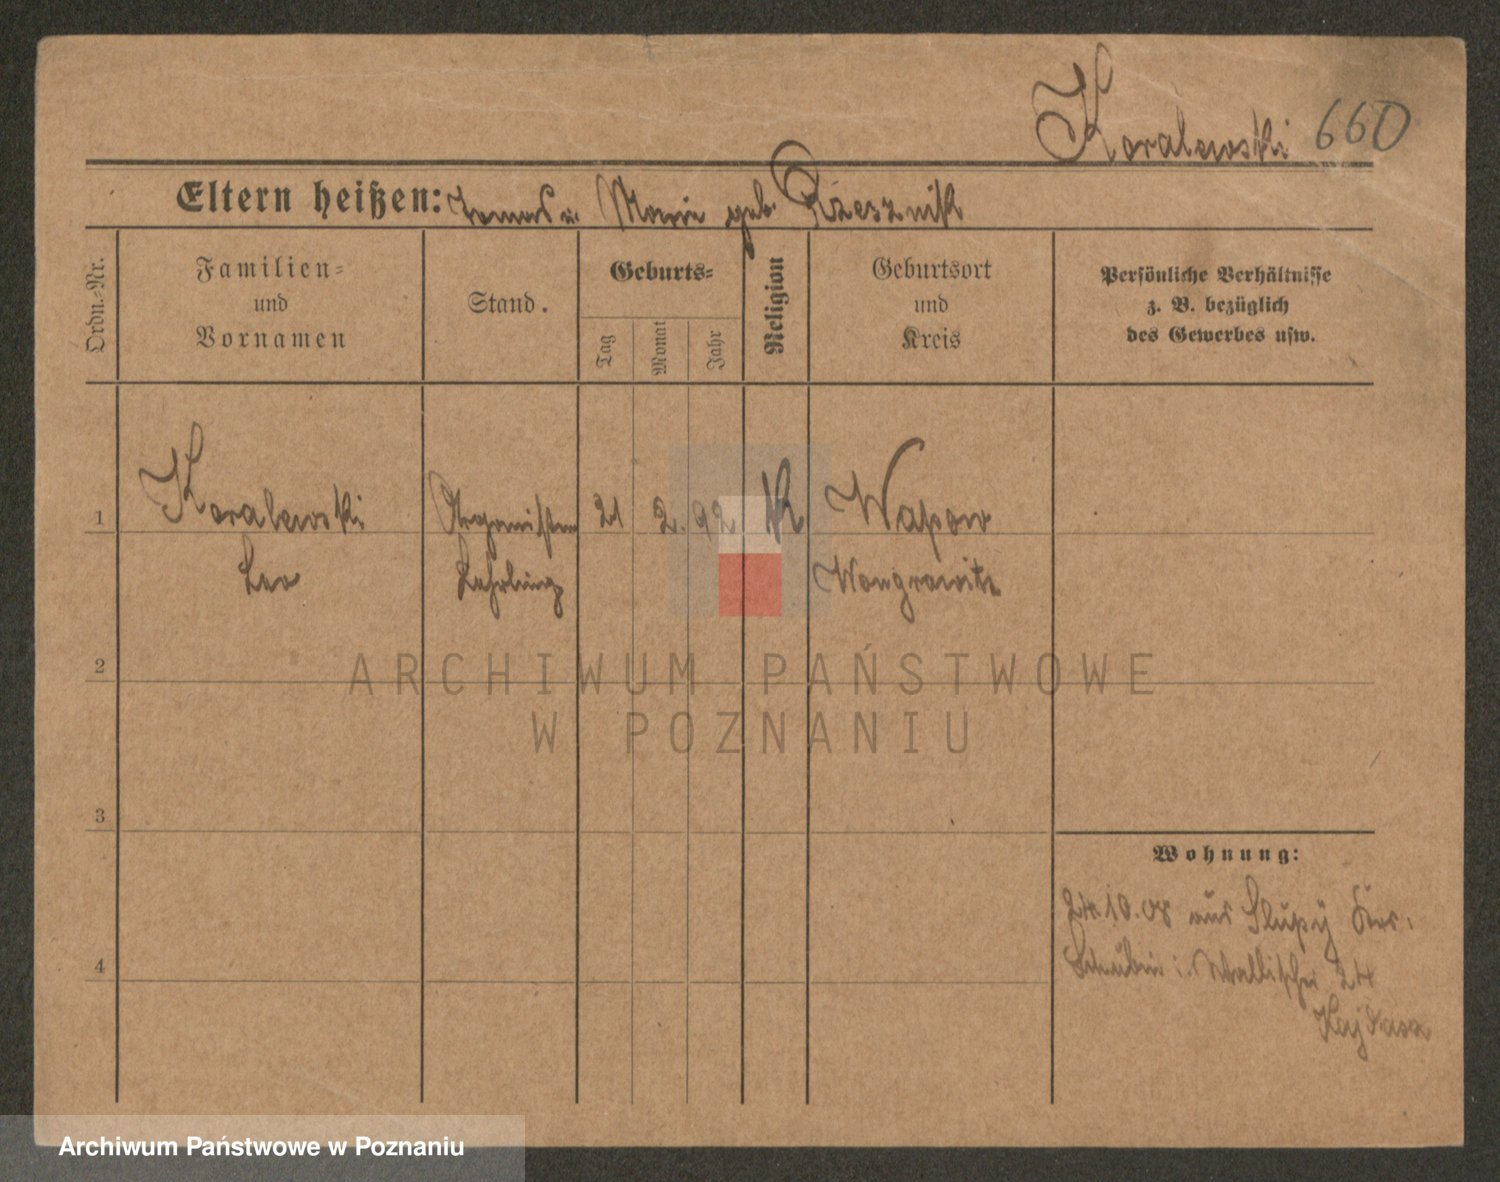 Koralewski 660
Eltern heißen: Tomas u. Marie geb. Rzesznik
Ordn.-Nr.
Familien-
und
Vornamen
Stand.
Geburts-
Tag
Monat
Jahr
Religion
Geburtsort
und
Kreis
Persönliche Verhältnisse
z. B. bezüglich
des Gewerbes usw.
1 Koralewski Organisten 21 2. 92 K Wapow
Leo Lehrling Wongrowitz
2
3
4
Wohnung:
24.10.08 aus Slupy Krs.
Schubin: Wallischei 24
Kajdasz
ARCHIWUM PAŃSTWOWE
W POZNANIU
Archiwum Państwowe w Poznaniu